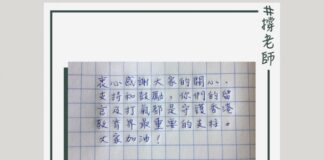 #撐老師
衷心感謝大家的關心、
支持和鼓勵，你們的留
言及打氣都是守護香港
教育界最重要的支柱。
大家加油！